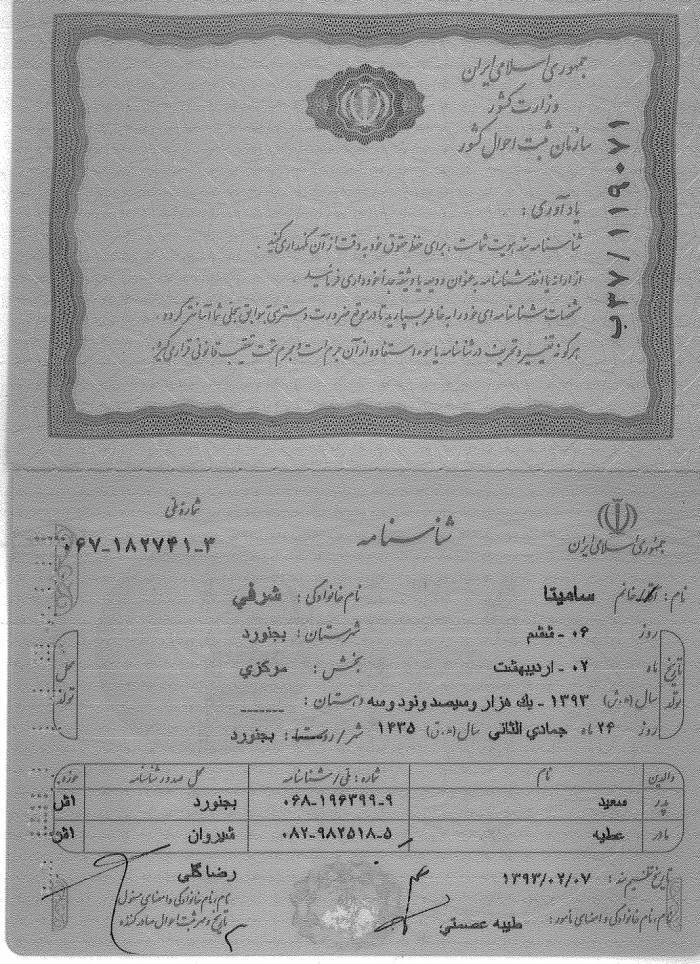 جمهوری اسلامی ایران
وزارت کشور
سازمان ثبت احوال کشور
ب۳۷/۱۱۹۰۷۱
یادآوری :
شناسنامه سند هویت شماست ، برای حفظ حقوق خود به دقت از آن نگهداری کنید .
از ارائه یا اخذ شناسنامه به عنوان ودیعه یا وثیقه جداً خودداری فرمائید .
مشخصات شناسنامه ای خود را به خاطر بسپارید تا در موقع ضرورت دسترسی به سوابق سجلی شما آسانتر گردد .
هرگونه تغییر و تحریف در شناسنامه یا سوء استفاده از آن جرم است و مجرم تحت تعقیب قانونی قرار می گیرد .
جمهوری اسلامی ایران
شناسنامه
شماره ملی
۰۶۷-۱۸۲۷۴۱-۳
نام : آقا/خانم سامیتا نام خانوادگی : شرفي
تاریخ تولد روز ۰۶ - ششم شهرستان : بجنورد محل تولد
ماه ۰۲ - ارديبهشت بخش : مركزي
سال (ه.ش) ۱۳۹۳ - يك هزار وسيصد ونود وسه دهستان : -------
روز ۲۴ ماه جمادي الثاني سال (ه.ق) ۱۴۳۵ شهر/روستا : بجنورد
والدین نام شماره : ملی/شناسنامه محل صدور شناسنامه حوزه
پدر سعيد ۰۶۸-۱۹۶۳۹۹-۹ بجنورد اش
مادر عطيه ۰۸۲-۹۸۲۵۱۸-۵ شيروان اش
تاریخ تنظیم سند : ۱۳۹۳/۰۲/۰۷ رضا گلي
نام،نام خانوادگی و امضای مامور : طيبه عصمتي
نام،نام خانوادگی و امضای مسئول
تاریخ و مهر ثبت احوال صادر کننده